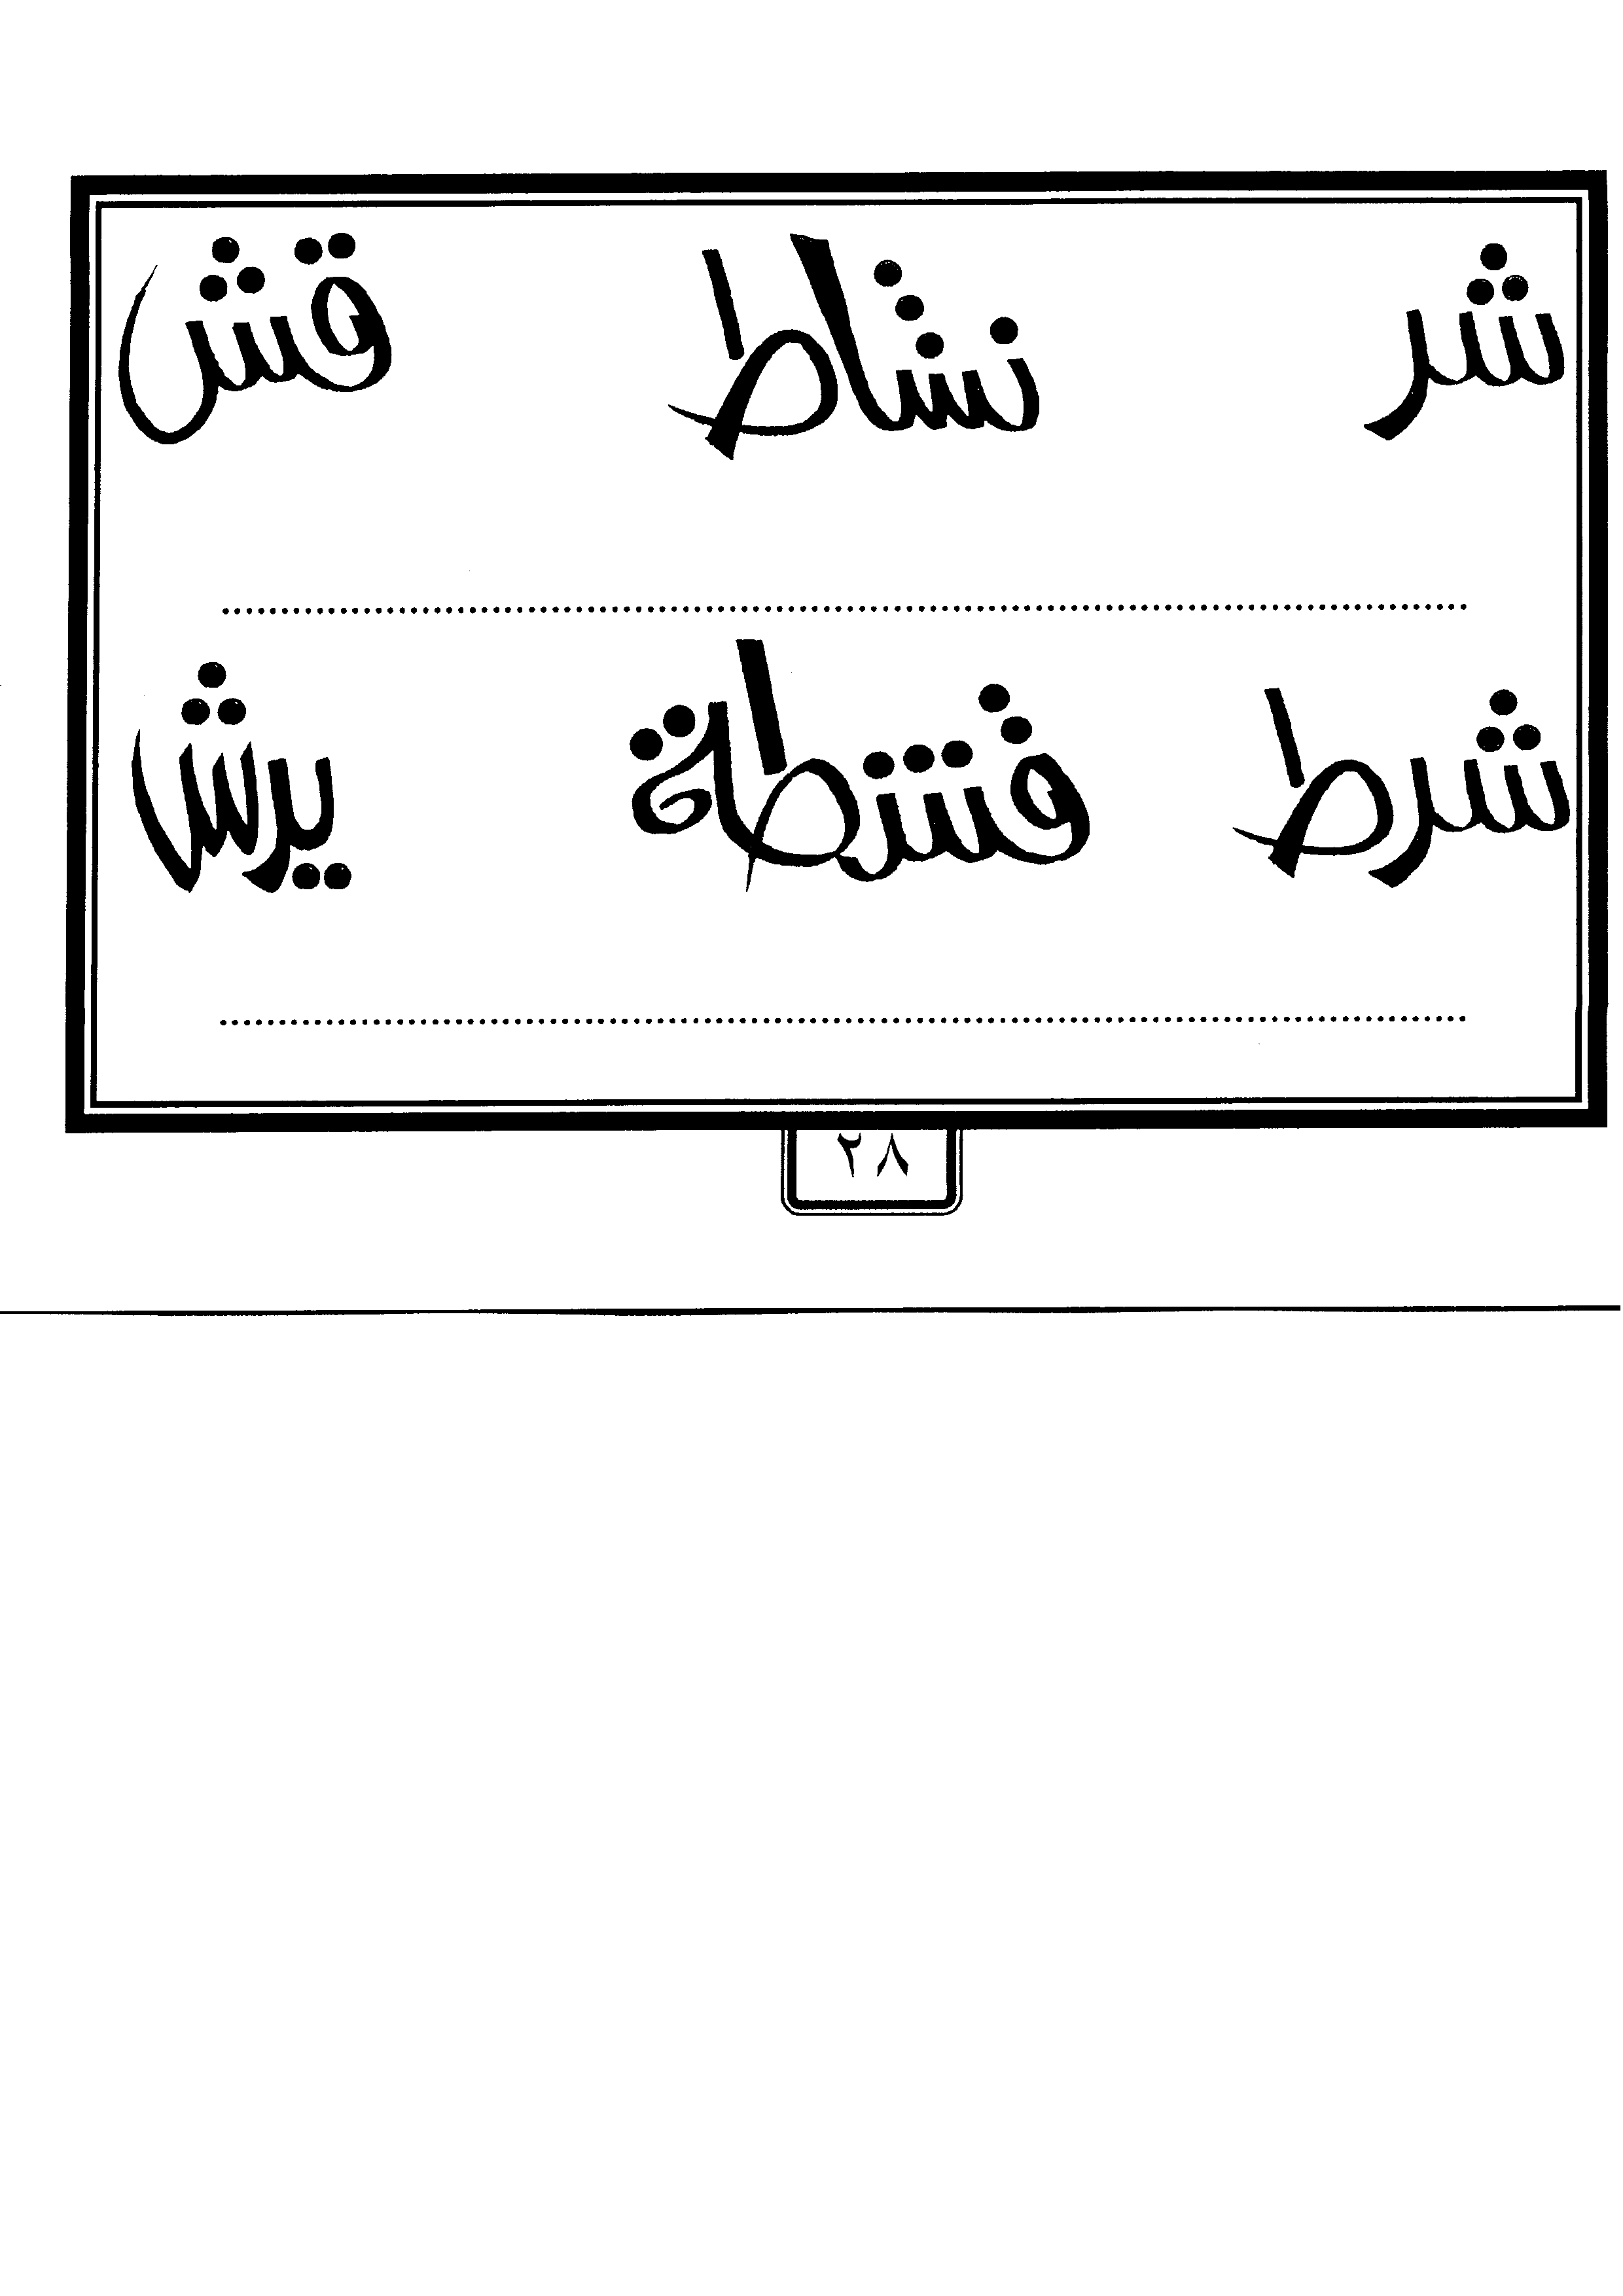 شر نشاط قش
شرط قشطة يرش
٢٨